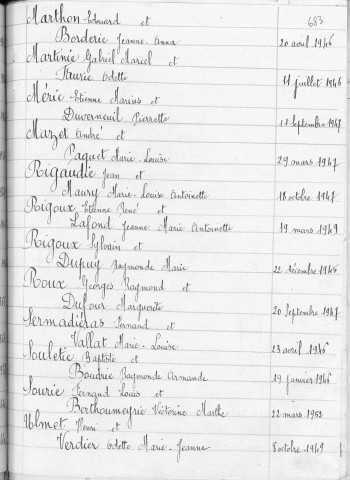 Marthon Edouard et
683
Borderie Jeanne Anna 20 avril 1946
Martinie Gabriel Marcel et
Fleurie Odette 11 juillet 1946
Méric Etienne Marius et
Duverneuil Pierrette 11 septembre 1947
Mazet André et
Paquet Marie-Louise 29 mars 1947
Rigaudie Jean et
Maury Marie-Louise Antoinette 18 octobre 1947
Rigoux Etienne René et
Lafond Jeanne Marie Antoinette 19 mars 1949
Rigoux Sylvain et
Dupuy Raymonde Marie 22 décembre 1945
Roux Georges Raymond et
Dufour Marguerite 20 Septembre 1947
Sermadiéras Fernand et
Vallat Marie-Louise 23 avril 1946
Souletie Baptiste et
Boudrie Raymonde Armande 19 janvier 1946
Sourie Fernand Louis et
Berthoumeyrie Victorine Marthe 22 mars 1952
Ulmet Henri et
Verdier Odette Marie-Jeanne 8 octobre 1949